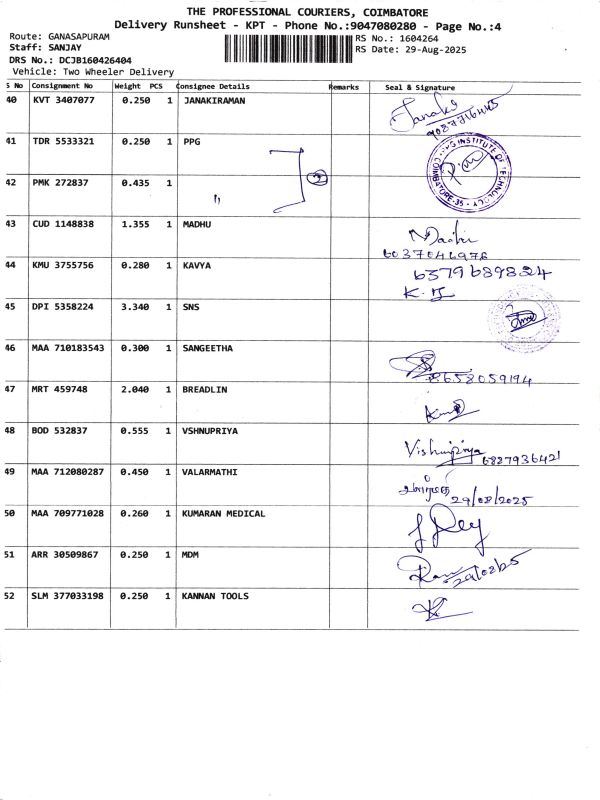 THE PROFESSIONAL COURIERS, COIMBATORE
Delivery Runsheet - KPT - Phone No.:9047080280 - Page No.:4
Route: GANASAPURAM
RS No.: 1604264
Staff: SANJAY
RS Date: 29-Aug-2025
DRS No.: DCJB160426404
Vehicle: Two Wheeler Delivery
S No Consignment No Weight PCS Consignee Details Remarks Seal & Signature
40 KVT 3407077 0.250 1 JANAKIRAMAN
Janaki
41 TDR 5533321 0.250 1 PPG
PPG INSTITUTE OF TECHNOLOGY COIMBATORE-35
42 PMK 272837 0.435 1
43 CUD 1148838 1.355 1 MADHU
6037046976
44 KMU 3755756 0.280 1 KAVYA
6379689824
45 DPI 5358224 3.340 1 SNS
46 MAA 710183543 0.300 1 SANGEETHA
8658059194
47 MRT 459748 2.040 1 BREADLIN
48 BOD 532837 0.555 1 VSHNUPRIYA
Vishnupriya 6827936421
49 MAA 712080287 0.450 1 VALARMATHI
29/08/2025
50 MAA 709771028 0.260 1 KUMARAN MEDICAL
51 ARR 30509867 0.250 1 MDM
52 SLM 377033198 0.250 1 KANNAN TOOLS